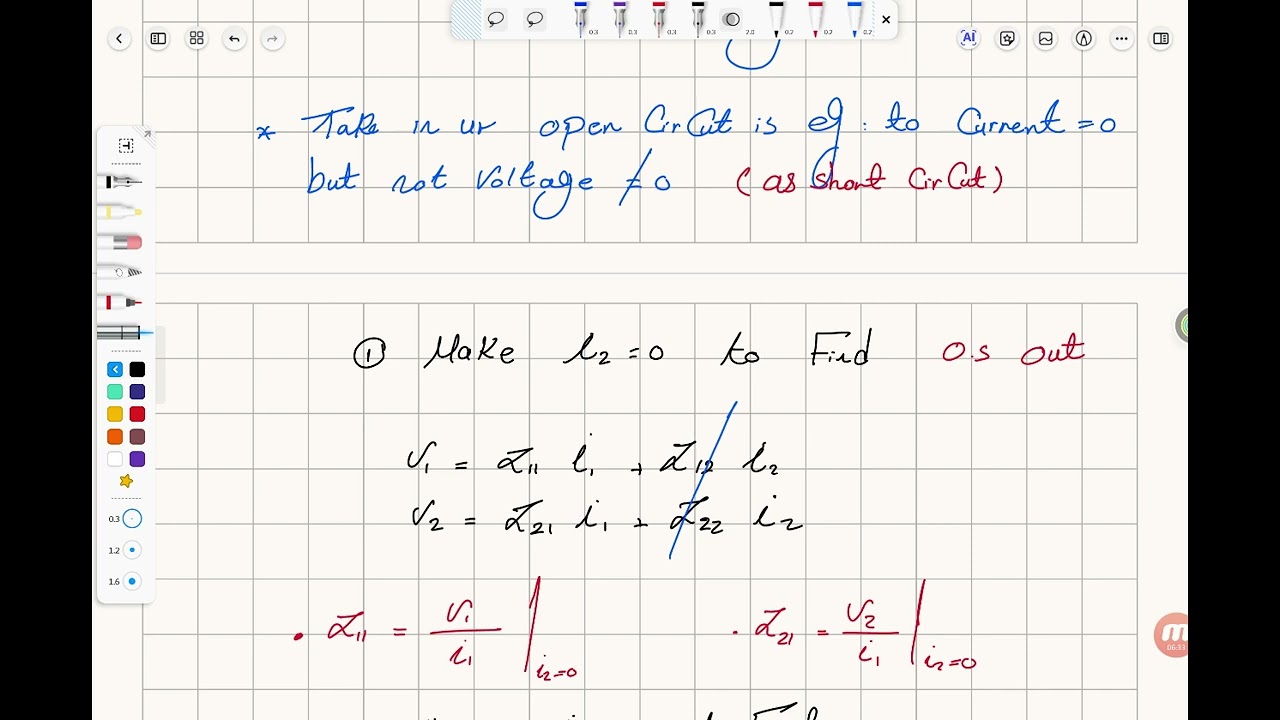 0.3 0.3 0.3 0.3 2.0 0.2 0.2 0.2
AI
* Take in ur open CirCut is eq : to Current = 0
but not Voltage ≠ 0 (as short CirCut)
① Make i₂ = 0 to Find O.S out
V₁ = Z₁₁ i₁ + Z₁₂ i₂
V₂ = Z₂₁ i₁ + Z₂₂ i₂
0.3
1.2
1.6
. Z₁₁ = V₁ / i₁ | i₂=0 . Z₂₁ = V₂ / i₁ | i₂=0
06:33